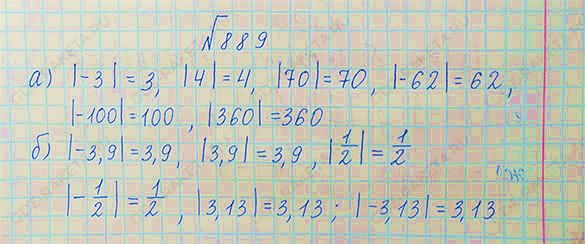 №889
а) |-3| = 3, |4| = 4, |70| = 70, |-62| = 62,
|-100| = 100, |360| = 360
б) |-3,9| = 3,9, |3,9| = 3,9, |1/2| = 1/2
|-1/2| = 1/2, |3,13| = 3,13; |-3,13| = 3,13